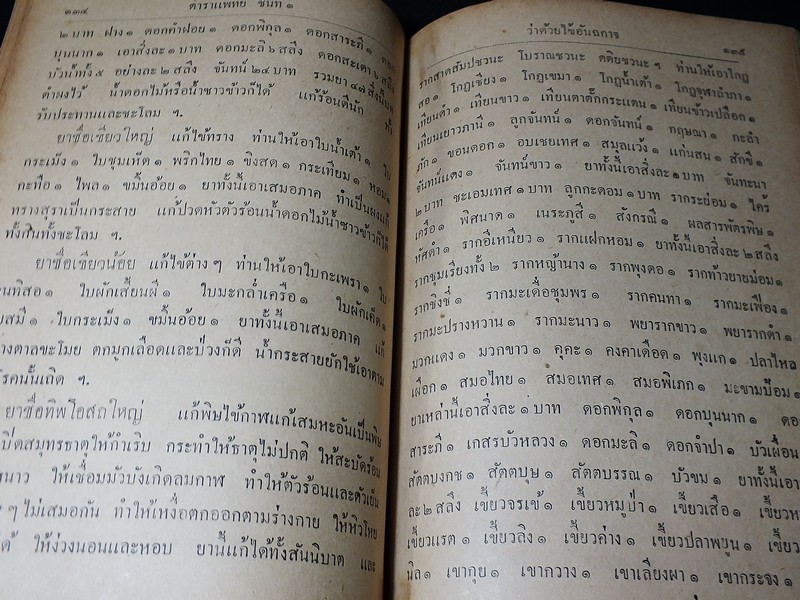 ๑๓๔ ตำราแพทย์ ชั้นที่ ๑
๒ บาท ฝาง ๑ ดอกคำฝอย ๑ ดอกพิกุล ๑ ดอกสาระภี ๑
บุนนาก ๑ เอาสิ่งละ ๑ บาท ดอกมะลิ ๖ สลึง ดอกสะเดา ๖ สลึง
บัวน้ำทั้ง ๕ อย่างละ ๒ สลึง จันทน์ ๒๔ บาท รวมยา ๔๓ สิ่งนี้บด
ตำผงไว้ น้ำดอกไม้หรือน้ำซาวข้าวก็ได้ แก้ร้อนดีนัก ทั้ง
รับประทานและชะโลม ฯ
ยาชื่อเขียวใหญ่ แก้ไข้ทราง ท่านให้เอาใบน้ำเต้า ๑ ใบ
กระเม็ง ๑ ใบชุมเห็ด ๑ พริกไทย ๑ ขิงสด ๑ กระเทียม ๑ หอม ๑
กะทือ ๑ ไพล ๑ ขมิ้นอ้อย ๑ ยาทั้งนี้เอาเสมอภาค ทำเป็นผงแก้
ทรางสุราเป็นกระสาย แก้ปวดหัวตัวร้อนน้ำดอกไม้น้ำซาวข้าวก็ได้
ทั้งกินทั้งชะโลม ฯ
ยาชื่อเขียวน้อย แก้ไข้ต่าง ๆ ท่านให้เอาใบกะเพรา ๑ ใบ
นทิสอ ๑ ใบผักเสี้ยนผี ๑ ใบมะกล่ำเครือ ๑ ใบผักเค็ด ๑
สมี ๑ ใบกระเม็ง ๑ ขมิ้นอ้อย ๑ ยาทั้งนี้เอาเสมอภาค แก้
างตาลขะโมย ตกมูกเลือดและป่วงก็ดี น้ำกระสายยักใช้เอาตาม
โรคนั้นเถิด ฯ
ยาชื่อทิพโอสถใหญ่ แก้พิษไข้กาฬแก้เสมหะอันเป็นพิษ
ปิดสมุทรธาตุให้กำเริบ กระทำให้ธาตุไม่ปกติ ให้สะบัดร้อน
นาว ให้เชื่อมมัวบังเกิดลมกาฬ ทำให้ตัวร้อนและตัวเย็น
ๆ ไม่เสมอกัน ทำให้เหงื่อตกออกตามร่างกาย ให้หิวโหย
ด้ ให้ง่วงนอนและหอบ ยานี้แก้ได้ทั้งสันนิบาต และ
ว่าด้วยไข้อันฉกาจ ๑๓๕
รากสาดสัมปชวนะ โบราณชวนะ ตติยชวนะ ฯ ท่านให้เอาโกฏ
สอ ๑ โกฏเชียง ๑ โกฏเขมา ๑ โกฏน้ำเต้า ๑ โกฏจุฬาลำภา ๑
เทียนดำ ๑ เทียนขาว ๑ เทียนตาตั๊กกระแตน ๑ เทียนข้าวเปลือก ๑
เทียนเยาวภานี ๑ ลูกจันทน์ ๑ ดอกจันทน์ ๑ กฤษณา ๑ กะลำ
ภัก ๑ ขอนดอก ๑ อบเชยเทศ ๑ สมุลแว้ง ๑ แก่นสน ๑ สักขี ๑
จันทน์แดง ๑ จันทน์ขาว ๑ ยาทั้งนี้เอาสิ่งละ ๑ บาท จันทะนา
๒ บาท ชะเอมเทศ ๑ บาท ลูกกะดอม ๑ บาท รากระย่อม ๑ ไคร้
เครือ ๑ พิศนาด ๑ เนระภูสี ๑ สังกรณี ๑ ผลสารพัดพิษ ๑
หัศดำ ๑ รากอีเหนียว ๑ รากแฝกหอม ๑ ยาทั้งนี้เอาสิ่งละ ๒ สลึง
รากชุมเรียงทั้ง ๒ รากหญ้านาง ๑ รากพุงดอ ๑ รากท้าวยายม่อม ๑
รากชิงชี่ ๑ รากมะเดื่อชุมพร ๑ รากคนทา ๑ รากมะเฟือง ๑
รากมะปรางหวาน ๑ รากมะนาว ๑ พยารากขาว ๑ พยารากดำ ๑
มวกแดง ๑ มวกขาว ๑ คุคะ ๑ คงคาเดือด ๑ พุงแก ๑ ปลาไหล
เผือก ๑ สมอไทย ๑ สมอเทศ ๑ สมอพิเภก ๑ มะขามป้อม ๑
ยาเหล่านี้เอาสิ่งละ ๑ บาท ดอกพิกุล ๑ ดอกบุนนาก ๑ ดอก
สาระภี ๑ เกสรบัวหลวง ๑ ดอกมะลิ ๑ ดอกจำปา ๑ บัวเผื่อน
สัตตบงกช ๑ สัตตบุษ ๑ สัตตบรรณ ๑ บัวขม ๑ ยาทั้งนี้เอา
ละ ๒ สลึง เขี้ยวจรเข้ ๑ เขี้ยวหมูป่า ๑ เขี้ยวเสือ ๑ เขี้ยวห
เขี้ยวแรต ๑ เขี้ยวลิง ๑ เขี้ยวค่าง ๑ เขี้ยวปลาพยูน ๑ เขี้ยว
นิล ๑ เขากุย ๑ เขากวาง ๑ เขาเลียงผา ๑ เขากระจง ๑